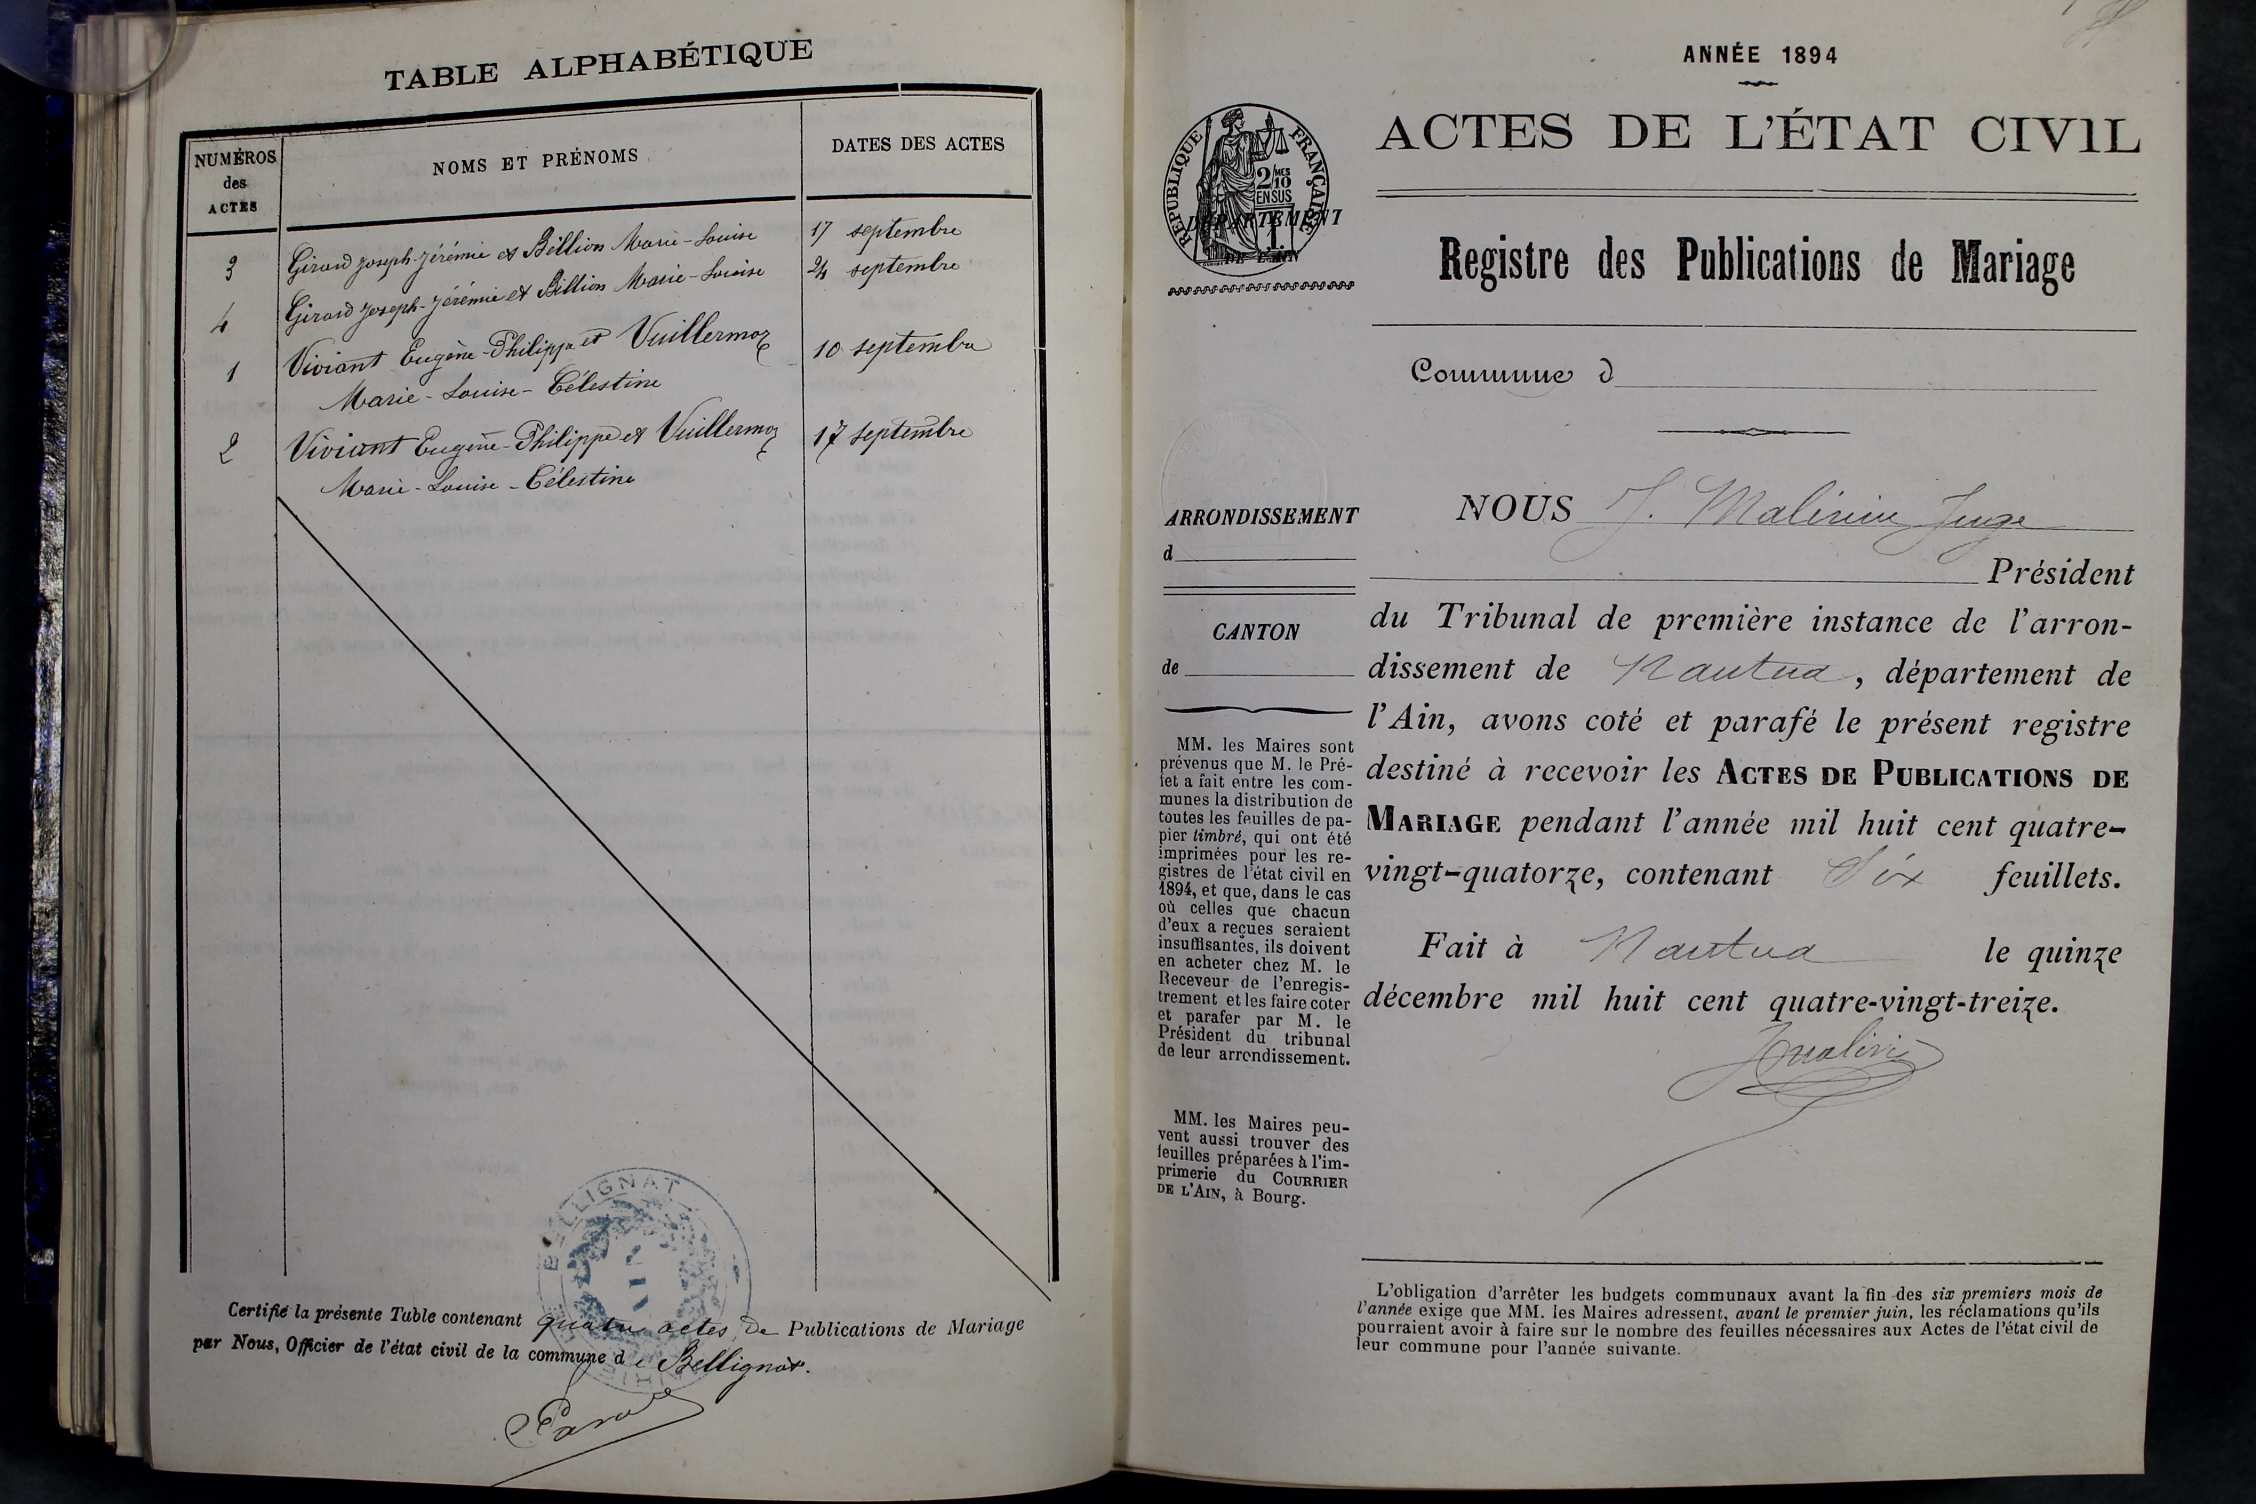 TABLE ALPHABÉTIQUE
NUMÉROS
des
ACTES
NOMS ET PRÉNOMS
DATES DES ACTES
3 Girard Joseph-Jérémie et Billion Marie-Louise 17 septembre
4 Girard Joseph-Jérémie et Billion Marie-Louise 24 septembre
1 Viviant Eugène-Philippe et Vuillermoz 10 septembre
Marie-Louise-Célestine
2 Viviant Eugène-Philippe et Vuillermoz 17 septembre
Marie-Louise-Célestine
BELLIGNAT
AIN
Certifié la présente Table contenant quatre actes de Publications de Mariage
par Nous, Officier de l'état civil de la commune de Bellignat.
ANNÉE 1894
ACTES DE L'ÉTAT CIVIL
RÉPUBLIQUE FRANÇAISE
2/10 MES
EN SUS
DÉPARTEMENT
DE L'AIN
Registre des Publications de Mariage
Commune d
ARRONDISSEMENT
d
CANTON
de
MM. les Maires sont
prévenus que M. le Pré-
fet a fait entre les com-
munes la distribution de
toutes les feuilles de pa-
pier timbré, qui ont été
imprimées pour les re-
gistres de l'état civil en
1894, et que, dans le cas
où celles que chacun
d'eux a reçues seraient
insuffisantes, ils doivent
en acheter chez M. le
Receveur de l'enregis-
trement et les faire coter
et parafer par M. le
Président du tribunal
de leur arrondissement.
MM. les Maires peu-
vent aussi trouver des
feuilles préparées à l'im-
primerie du COURRIER
DE L'AIN, à Bourg.
NOUS J. Juge
Président
du Tribunal de première instance de l'arron-
dissement de Nantua, département de
l'Ain, avons coté et parafé le présent registre
destiné à recevoir les ACTES DE PUBLICATIONS DE
MARIAGE pendant l'année mil huit cent quatre-
vingt-quatorze, contenant Six feuillets.
Fait à Nantua le quinze
décembre mil huit cent quatre-vingt-treize.
L'obligation d'arrêter les budgets communaux avant la fin des six premiers mois de
l'année exige que MM. les Maires adressent, avant le premier juin, les réclamations qu'ils
pourraient avoir à faire sur le nombre des feuilles nécessaires aux Actes de l'état civil de
leur commune pour l'année suivante.